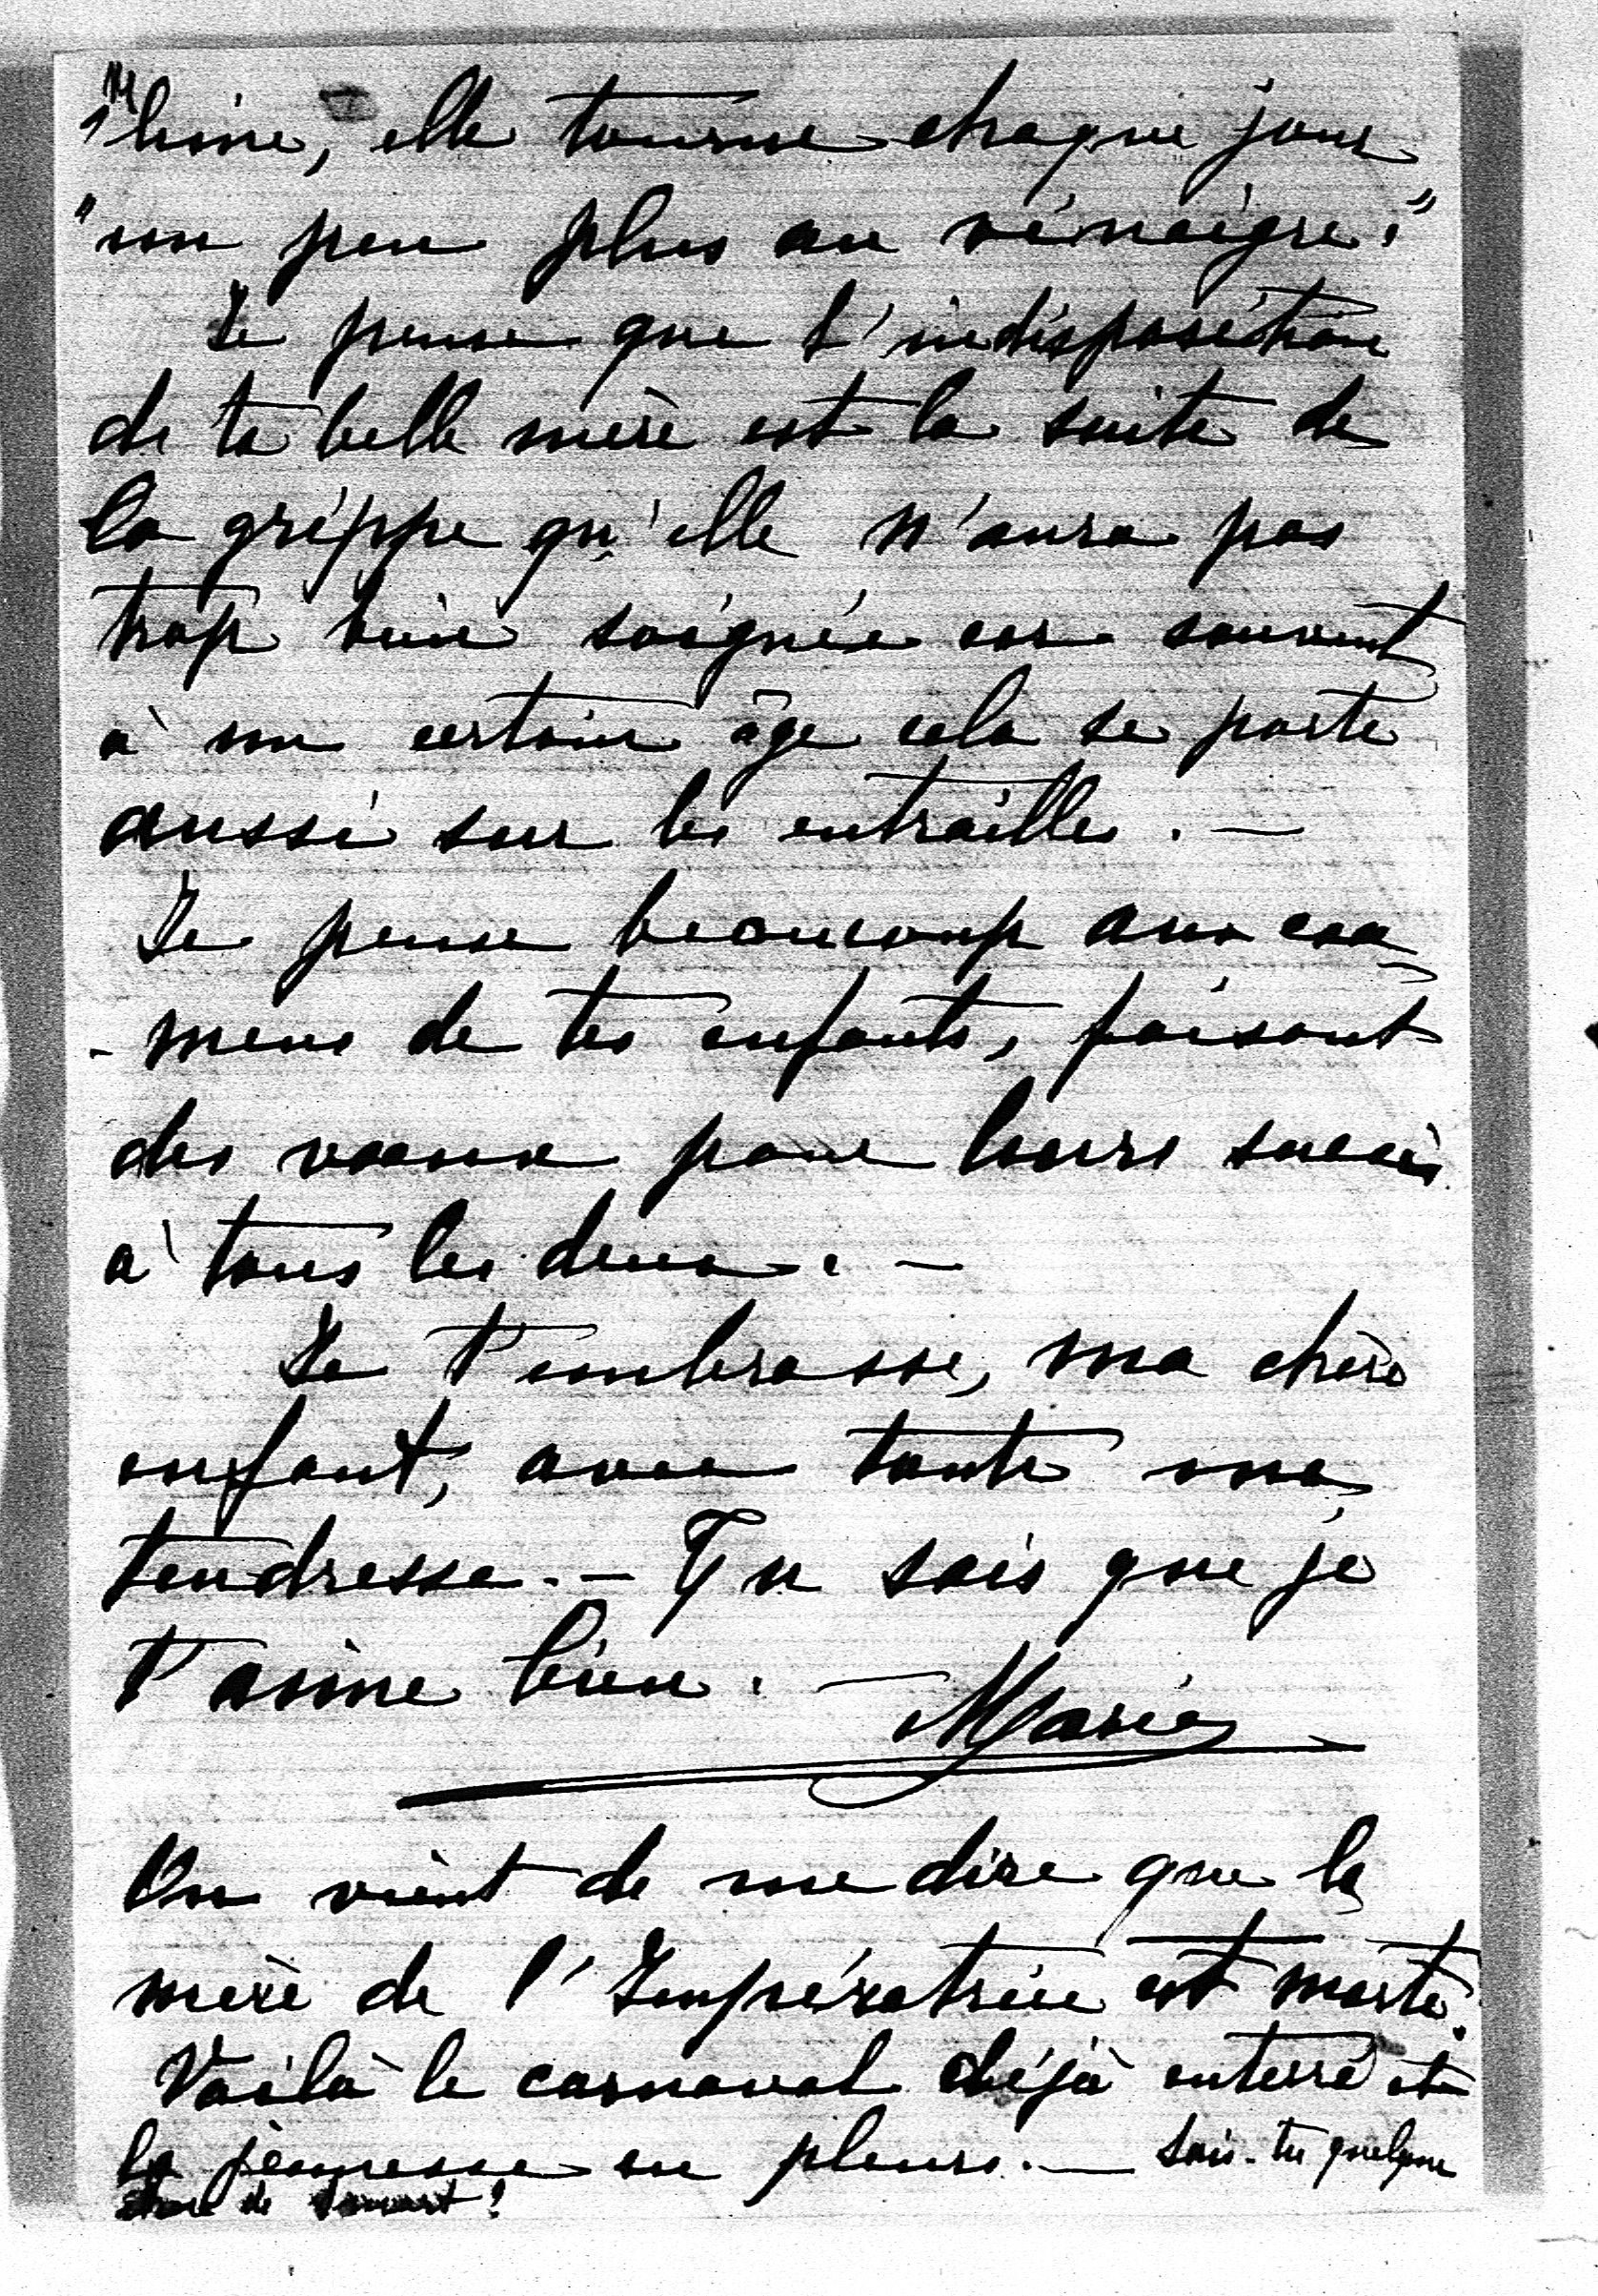 "line, elle tourne chaque jour
"un peu plus au vinaigre."
Je pense que l'indisposition
de ta belle mère est la suite de
la grippe qu'elle n'aura pas
trop bien soignée car souvent
à un certain âge cela se porte
aussi sur les entrailles. —
Je pense beaucoup aux exa
- mens de tes enfants, faisant
des vœux pour leurs succès
à tous les deux. —
Je t'embrasse, ma chère
enfant, avec toute ma
tendresse. — Tu sais que je
t'aime bien. —
Marie
On vient de me dire que la
mère de l'Impératrice est morte.
Voilà le carnaval déjà enterré et
la jeunesse en pleurs. — Sais-tu quelque
chose de